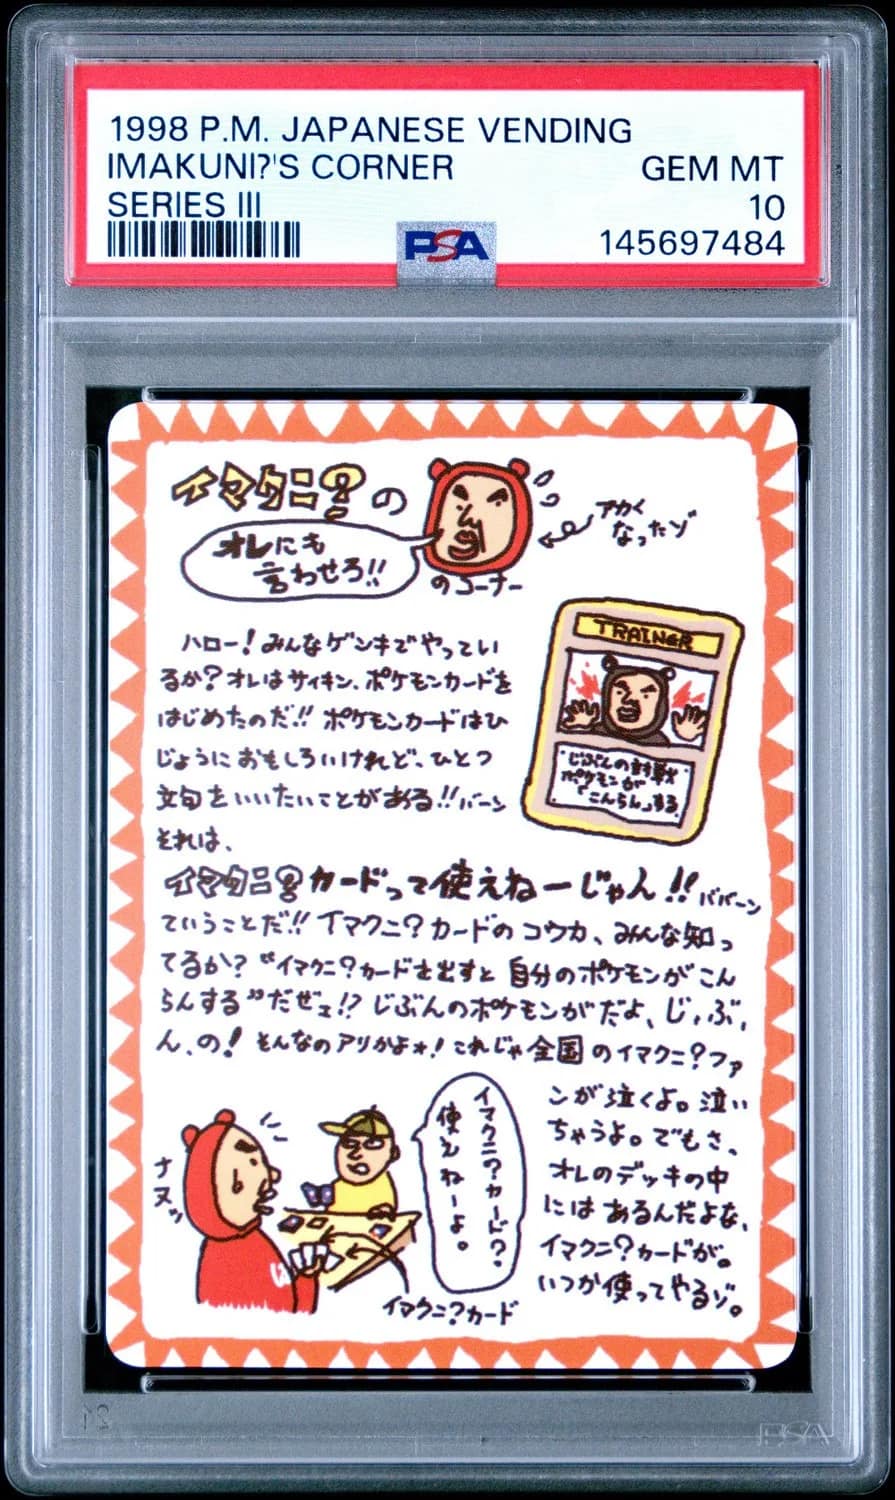 1998 P.M. JAPANESE VENDING
IMAKUNI?'S CORNER
GEM MT
SERIES III
10
PSA
145697484
イマクニ?の
オレにも
言わせろ!!
のコーナー
アカく
なったゾ
ハロー!みんなゲンキでやってい
るか?オレはサイキン、ポケモンカードを
はじめたのだ!!ポケモンカードはひ
じょうにおもしろいけれど、ひとつ
文句をいいたいことがある!!バーン
それは、
TRAINER
じぶんの対戦
ポケモンが
「こんらん」する
イマクニ?カードって使えねーじゃん!!ババーン
ていうことだ!!イマクニ?カードのコウカ、みんな知っ
てるか?“イマクニ?カードを出すと自分のポケモンがこん
らんする”だぜェ!?じぶんのポケモンがだよ、じ、ぶ、
ん、の!そんなのアリかよ★!これじゃ全国のイマクニ?ファ
ンが泣くよ。泣い
ちゃうよ。でもさ、
オレのデッキの中
にはあるんだよな、
イマクニ?カードが。
いつか使ってやるゾ。
ナヌッ
イマクニ?カード?
使えねーよ。
イマクニ?カード
PSA